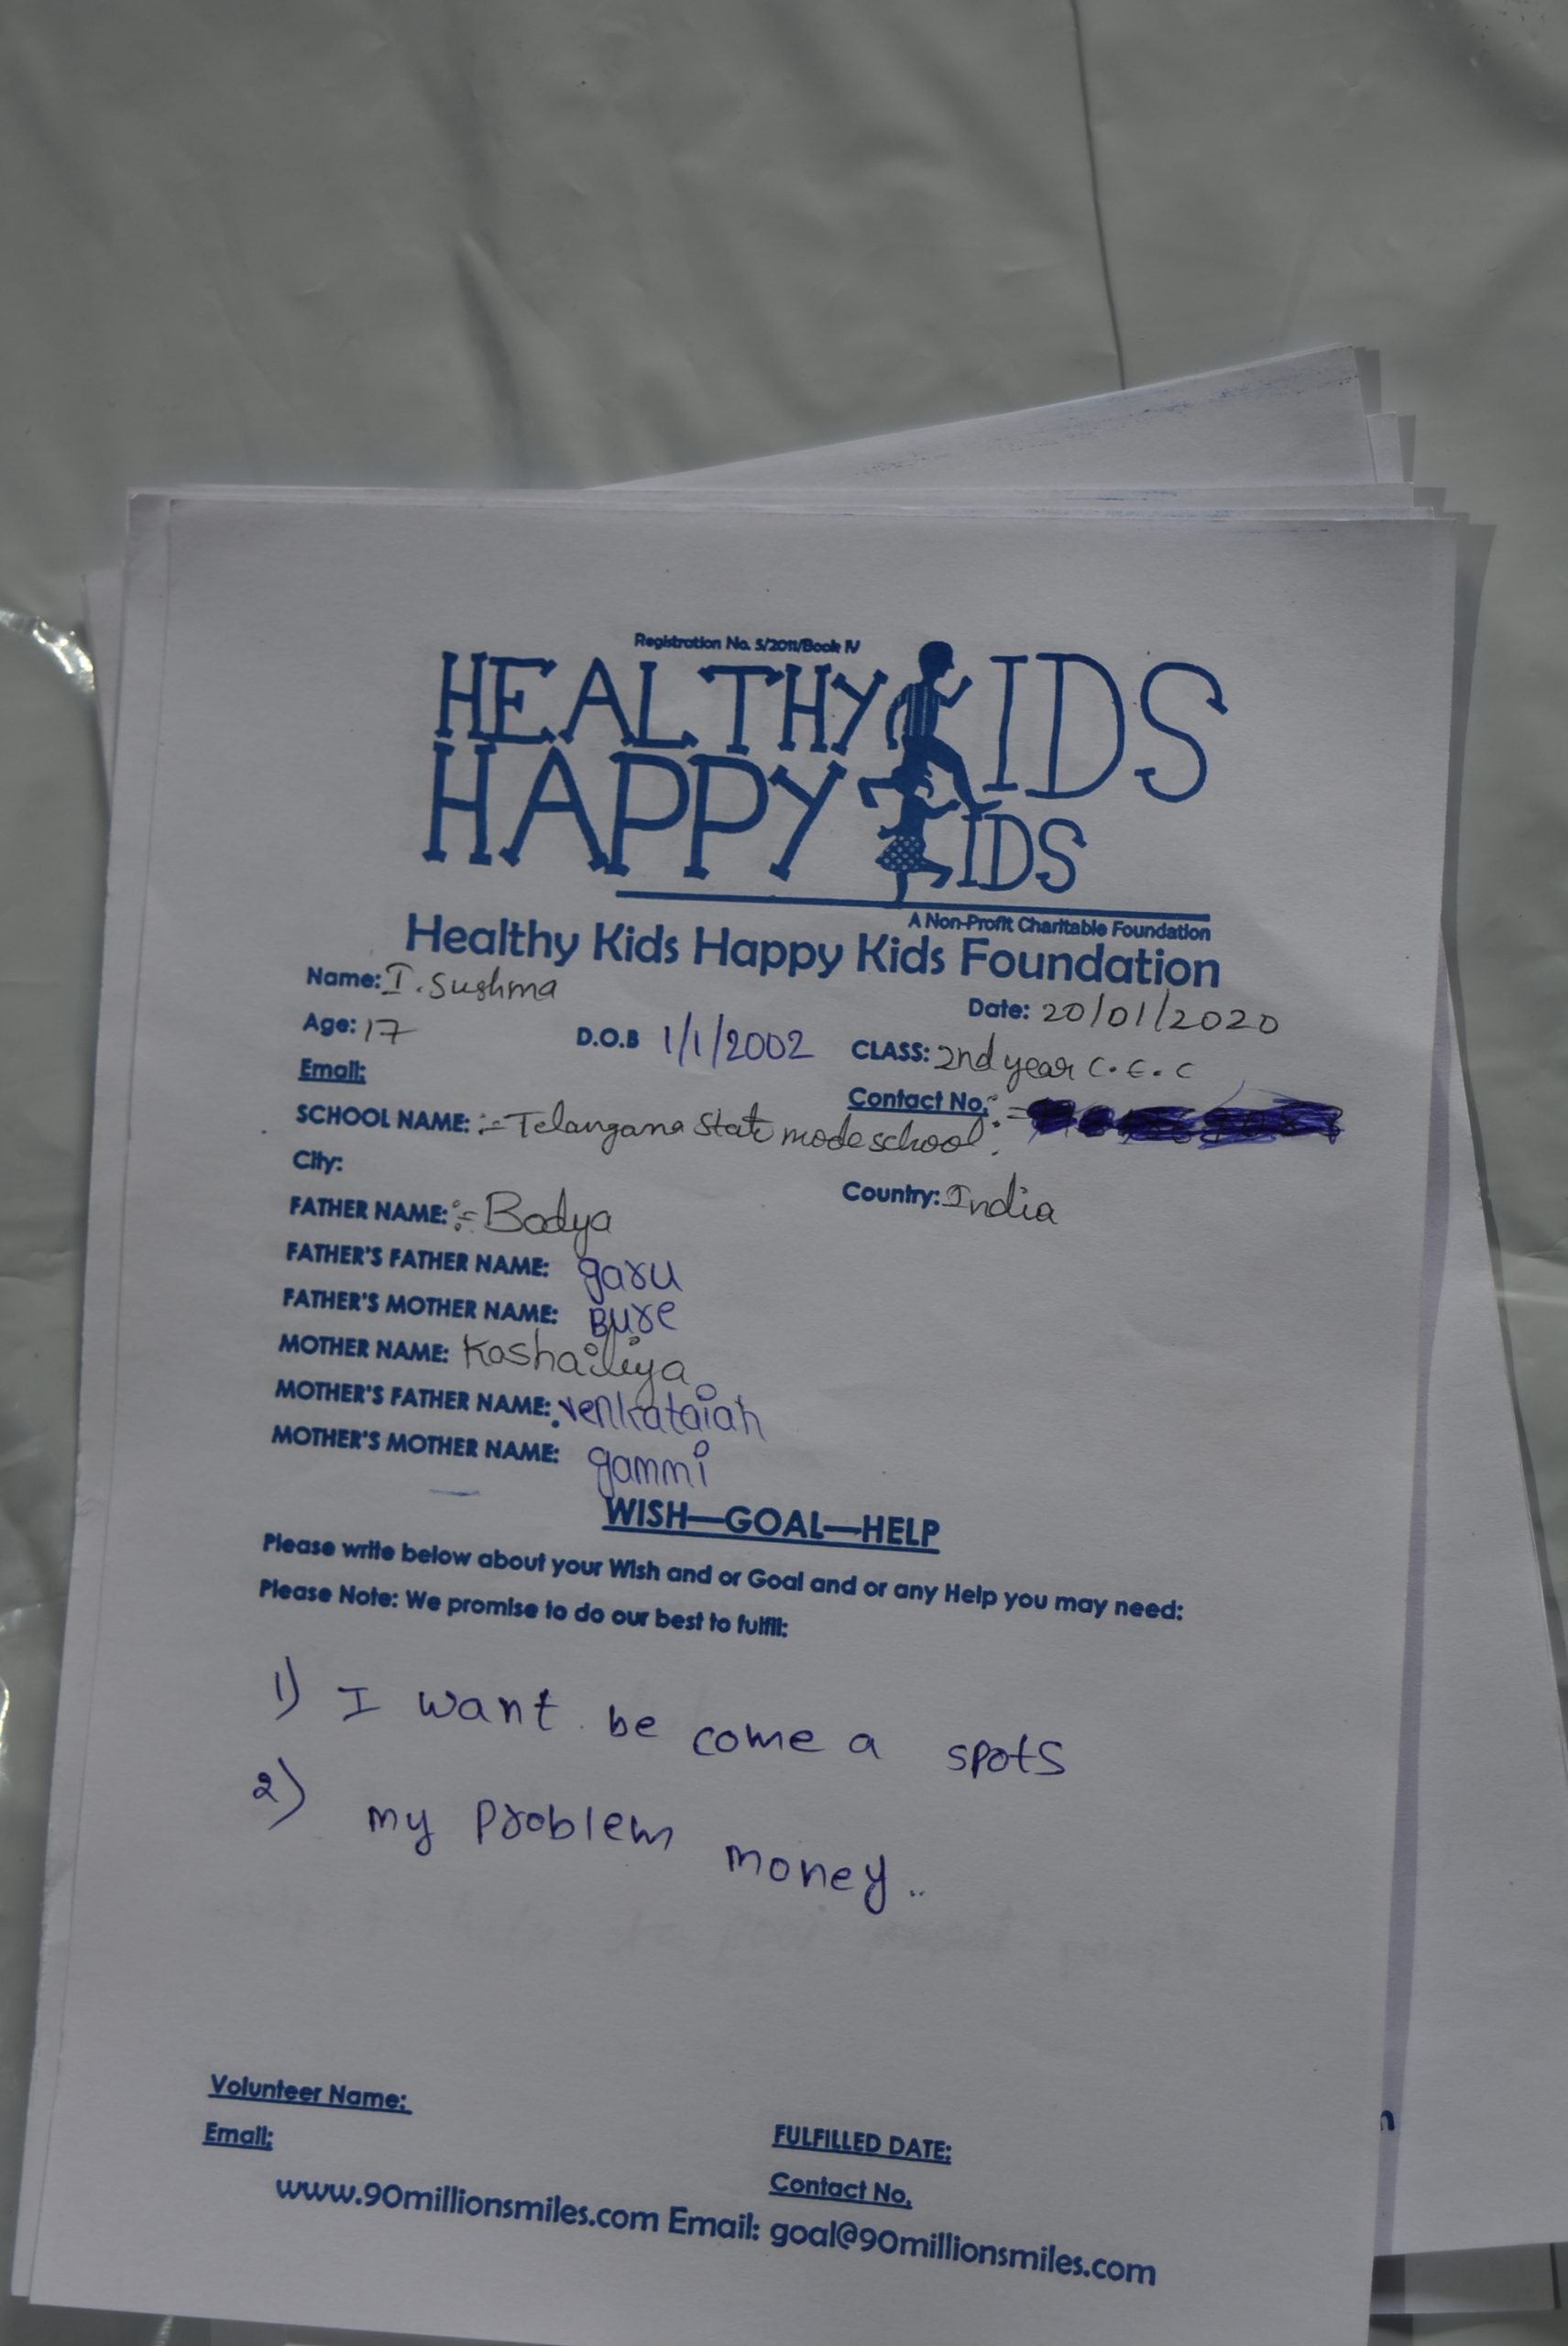 Registration No. 5/2011/Book IV
HEALTHY KIDS
HAPPY KIDS
A Non-Profit Charitable Foundation
Healthy Kids Happy Kids Foundation
Name: I. Sushma
Date: 20/01/2020
Age: 17 D.O.B 1/1/2002 CLASS: 2nd year C.E.C
Email:
Contact No.:=
SCHOOL NAME: :- Telangana State mode school.
City:
Country: India
FATHER NAME: :- Badya
FATHER'S FATHER NAME: garu
FATHER'S MOTHER NAME: Bure
MOTHER NAME: Koshailiya
MOTHER'S FATHER NAME: venkataiah
MOTHER'S MOTHER NAME: gammi
WISH—GOAL—HELP
Please write below about your Wish and or Goal and or any Help you may need:
Please Note: We promise to do our best to fulfil:
1) I want be come a spots
2) my problem money..
Volunteer Name:
FULFILLED DATE:
Email:
Contact No.
www.90millionsmiles.com Email: goal@90millionsmiles.com